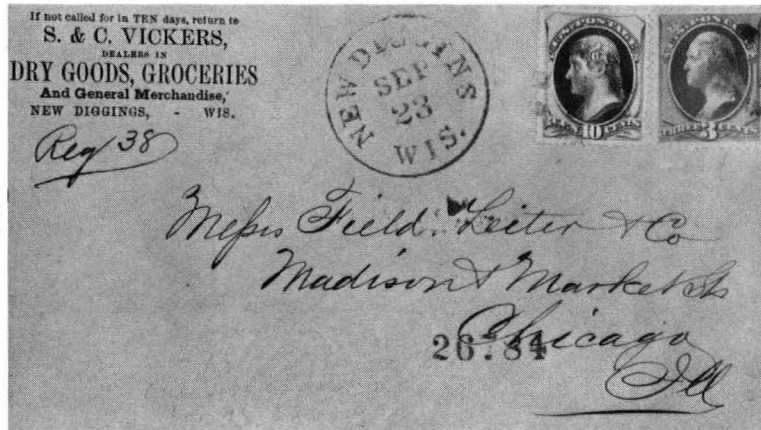 If not called for in TEN days, return to
S. & C. VICKERS,
DEALERS IN
DRY GOODS, GROCERIES
And General Merchandise,
NEW DIGGINGS, - WIS.
Reg 38
NEW DIGGINS
SEP
23
WIS.
U.S. POSTAGE
TEN 10 CENTS
U.S. POSTAGE
THREE 3 CENTS
Messrs Field. Leiter & Co
Madison & Market Sts
Chicago
26:84
Ill